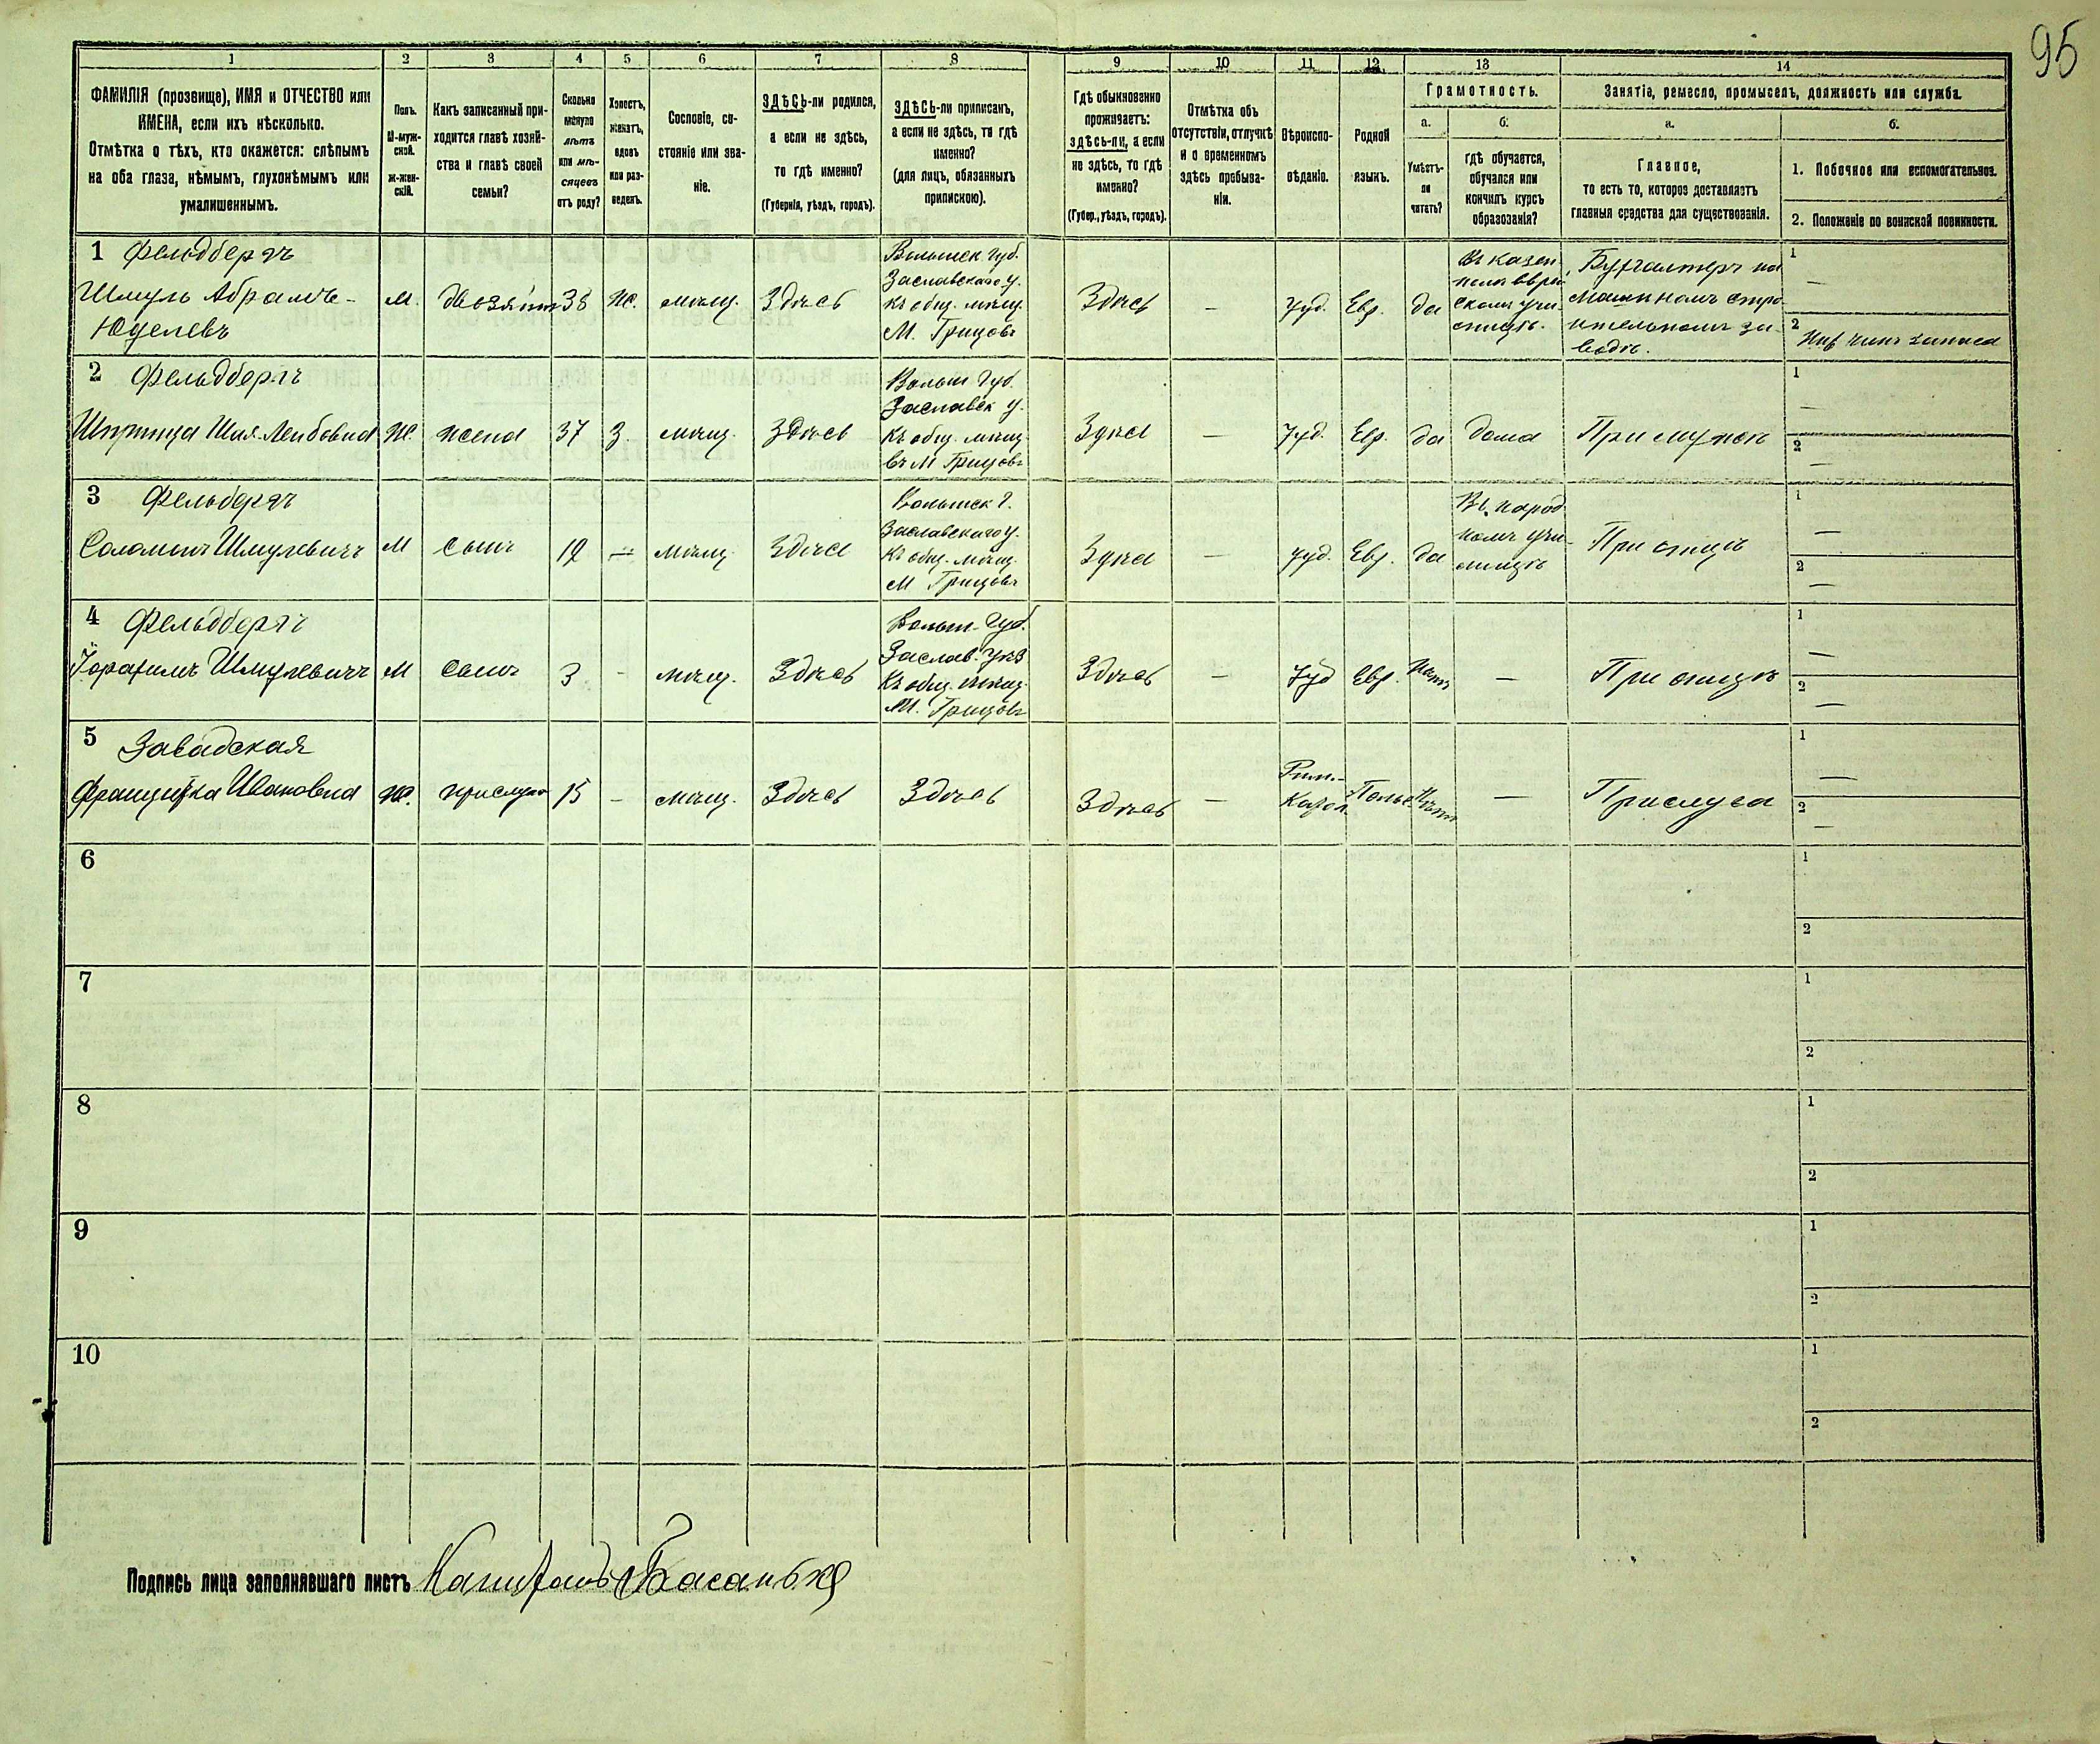 95
1 2 3 4 5 6 7 8 9 10 11 12 13 14
ФАМИЛІЯ (прозвище), ИМЯ и ОТЧЕСТВО или
ИМЕНА, если ихъ нѣсколько.
Отмѣтка о тѣхъ, кто окажется: слѣпымъ
на оба глаза, нѣмымъ, глухонѣмымъ или
умалишеннымъ.
Полъ.
М-муж-
ской.
Ж-жен-
скій.
Какъ записанный при-
ходится главѣ хозяй-
ства и главѣ своей
семьи?
Сколько
минуло
лѣтъ
или мѣ-
сяцевъ
отъ роду?
Холостъ,
женатъ,
вдовъ
или раз-
веденъ.
Сословіе, со-
стояніе или зва-
ніе.
ЗДѢСЬ-ли родился,
а если не здѣсь,
то гдѣ именно?
(Губернія, уѣздъ, городъ).
ЗДѢСЬ-ли приписанъ,
а если не здѣсь, то гдѣ
именно?
(для лицъ, обязанныхъ
припискою).
Гдѣ обыкновенно
проживаетъ:
здѣсь-ли, а если
не здѣсь, то гдѣ
именно?
(Губер., уѣздъ, городъ).
Отмѣтка объ
отсутствіи, отлучкѣ
и о временномъ
здѣсь пребыва-
ніи.
Вѣроиспо-
вѣданіе.
Родной
языкъ.
Грамотность.
а.
Умѣетъ-
ли
читать?
б.
гдѣ обучается,
обучался или
кончилъ курсъ
образованія?
Занятіе, ремесло, промыселъ, должность или служба.
а.
Главное,
то есть то, которое доставляетъ
главныя средства для существованія.
б.
1. Побочное или вспомогательное.
2. Положеніе по воинской повинности.
1 Фельдбергъ
Шмуль Абрамъ-
Юделевъ
М.
38
Ж.
мѣщ.
Здѣсь
Волынск. губ.
Заславскаго у.
Къ общ. мѣщ.
М. Грицовъ
Здѣсь
—
Іуд.
Евр.
да
Въ казен-
номъ еврей-
скомъ учи-
лищѣ.
Бухгалтеръ на
Машиномъ стро-
ительномъ за-
водѣ.
1
—
2
Ниж чинъ запаса
2 Фельдбергъ
Шпринца Шая-Лейбовна
Ж.
жена
37
З.
мѣщ.
Здѣсь
Волын губ.
Заславск у.
Къ общ. мѣщ.
въ М Грицовъ
Здѣсь
—
Іуд.
Евр.
да
дома
При мужѣ
1
—
2
—
3 Фельбергъ
Соломонъ Шмулевичъ
М
Сынъ
12
—
мѣщ.
Здѣсь
Волынск г.
Заславскаго у.
Къ общ. мѣщ.
М Грицовъ
Здѣсь
—
Іуд.
Евр.
да
Въ народ
номъ учи-
лищѣ
При отцѣ
1
—
2
—
4 Фельдбергъ
Шмулевичъ
М
Сынъ
3
-
мѣщ.
Здѣсь
Волын. Губ.
Заслав. уѣз
Къ общ. мѣщ.
М. Грицовъ
Здѣсь
—
Іуд
Евр.
Нѣтъ
—
При отцѣ
1
—
2
—
5 Завадская
Францишка Ивановна
Ж.
прислуга
15
-
мѣщ.
Здѣсь
Здѣсь
Здѣсь
—
Рим.-
Катол.
Польс
Нѣтъ
—
Прислуга
1
—
2
—
6
1
2
7
1
2
8
1
2
9
1
2
10
1
2
Подпись лица заполнявшаго листъ